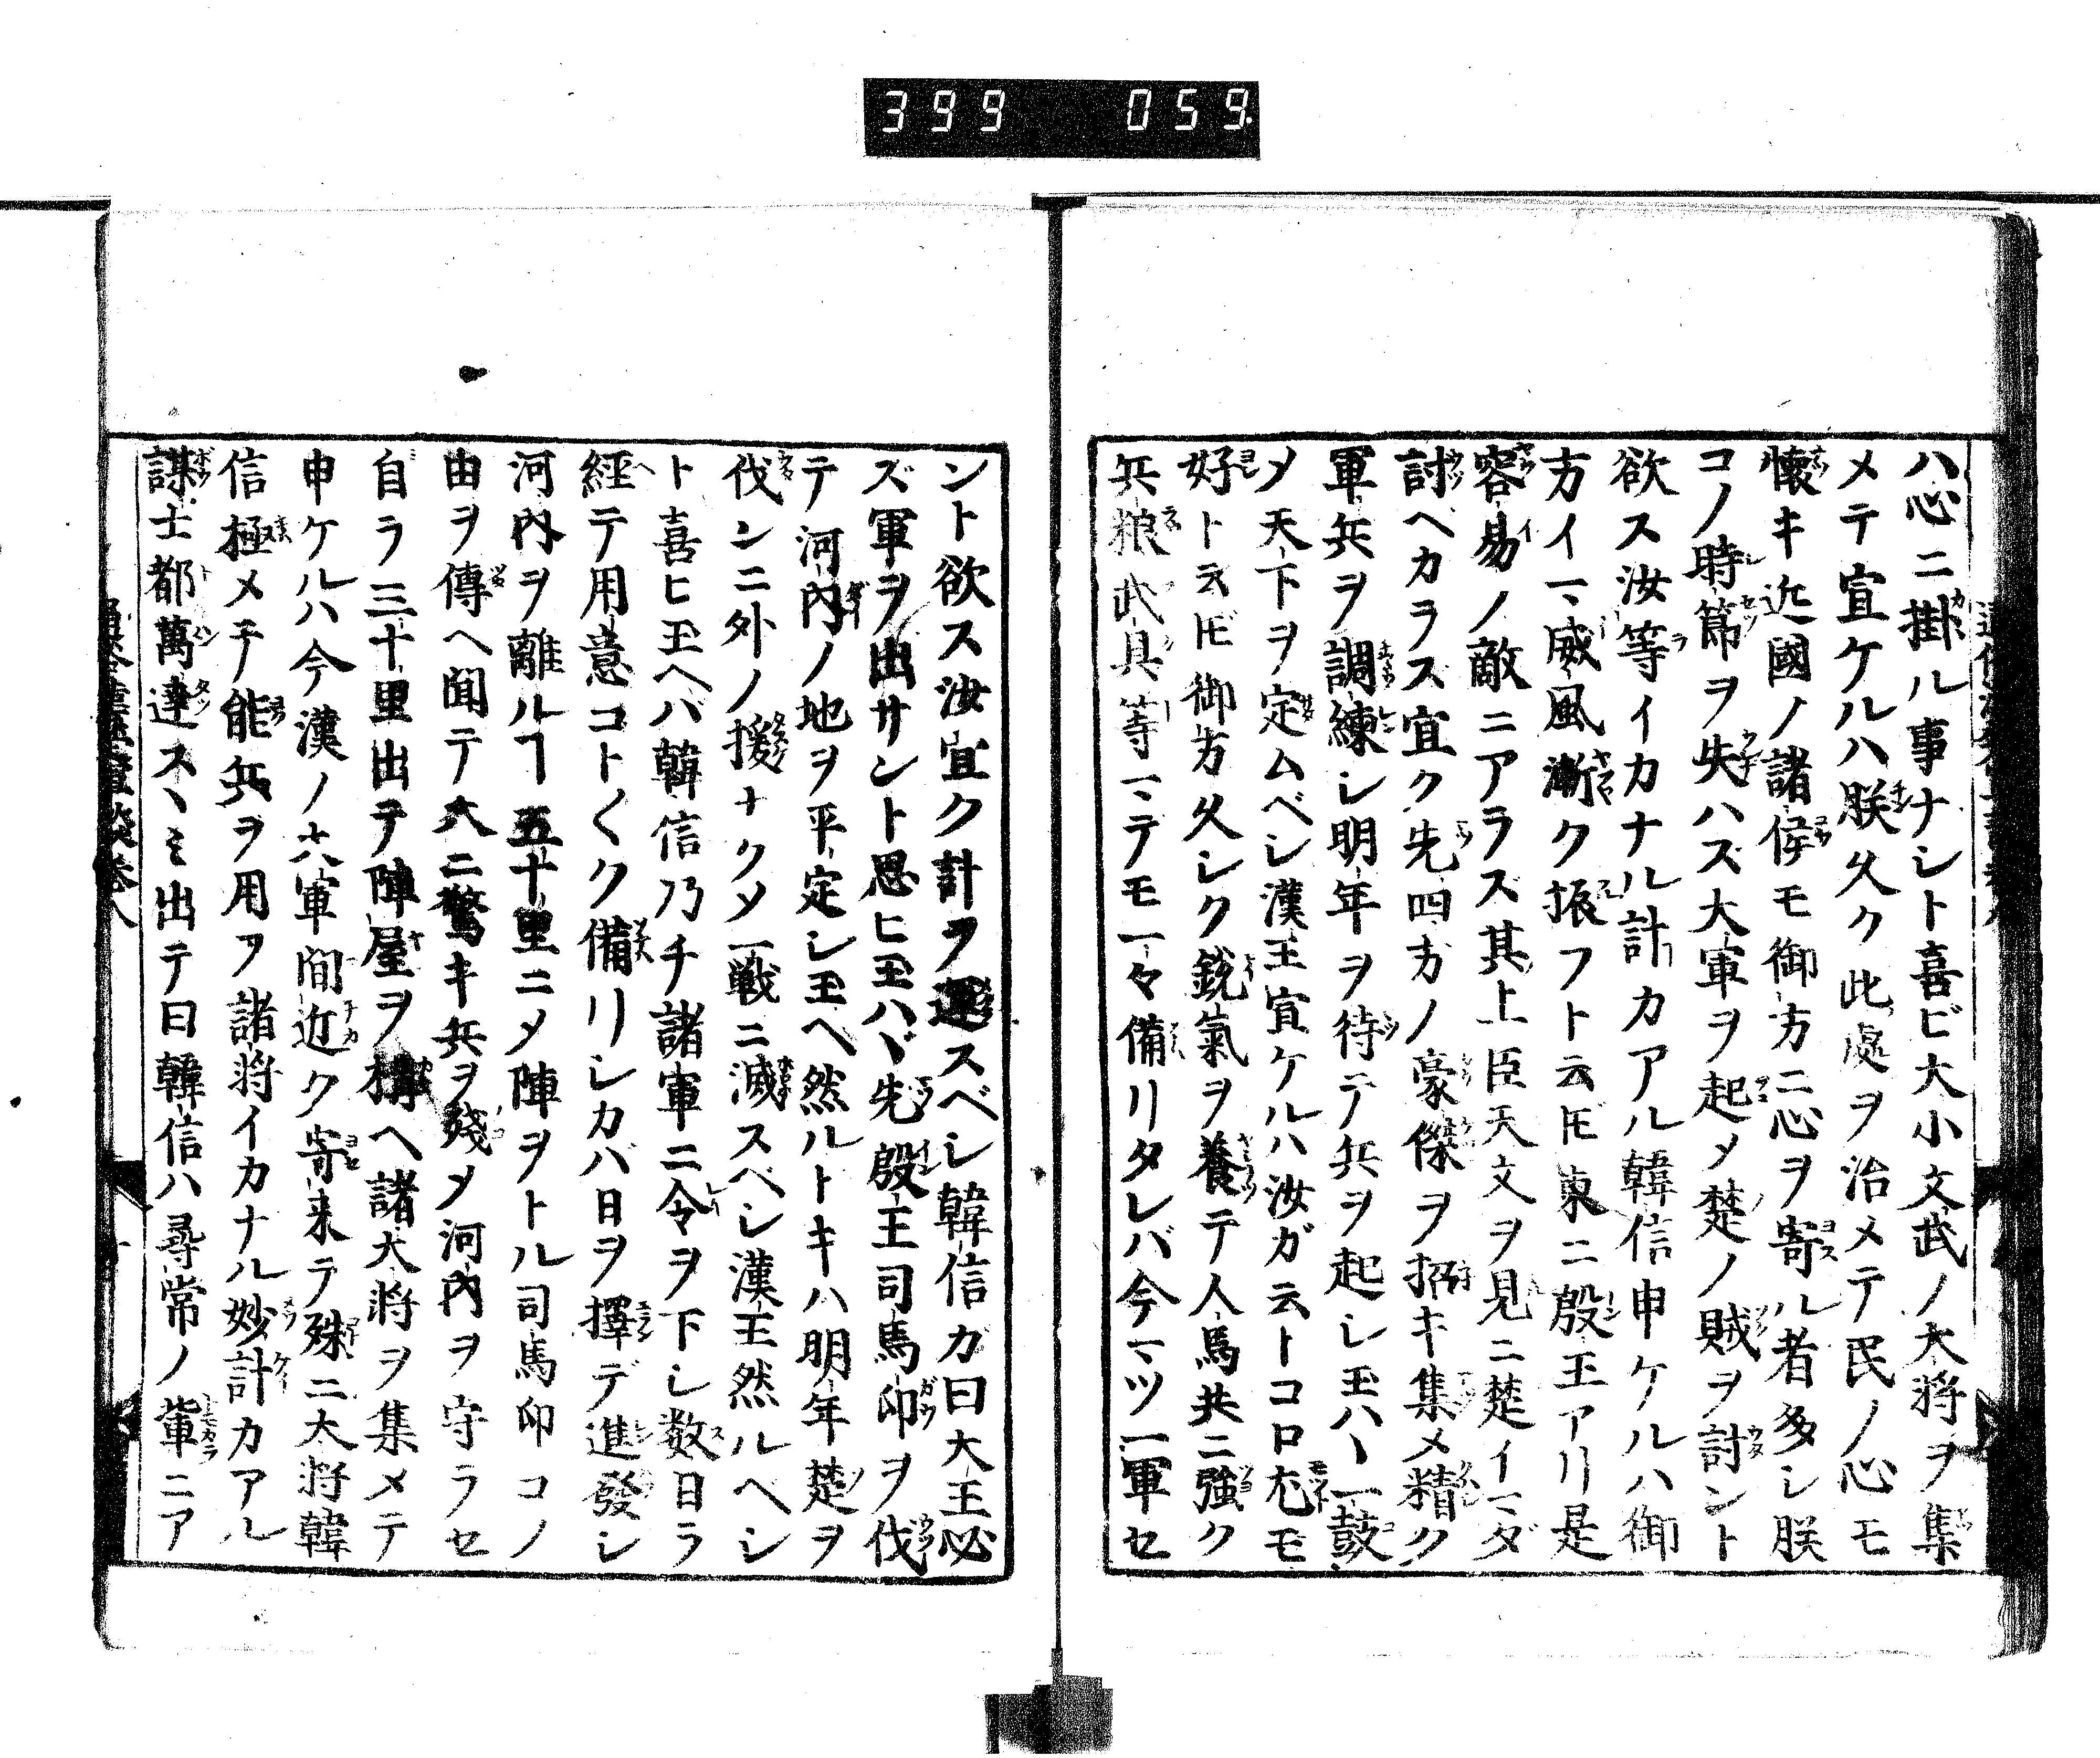 399 059
ハ心ニ掛ル事ナシト喜ビ大小文武ノ大将ヲ集
メテ宣ケルハ朕久ク此處ヲ治メテ民ノ心モ
懐キ近國ノ諸侯モ御方ニ心ヲ寄ル者多シ朕
コノ時節ヲ失ハズ大軍ヲ起メ楚ノ賊ヲ討ント
欲ス汝等イカナル計カアル韓信申ケルハ御
方イマ威風漸ク振フト云𪜈東ニ殷王アリ是
容易ノ敵ニアラズ其上臣天文ヲ見ニ楚イマダ
討ベカラズ宜ク先四方ノ豪傑ヲ招キ集メ精ク
軍兵ヲ調練シ明年ヲ待テ兵ヲ起シ玉ハヽ一鼓
〆天下ヲ定ムベシ漢王宣ケルハ汝ガ云トコロ尤モ
好ト云𪜈御方久シク鋭氣ヲ養テ人馬共ニ強ク
兵粮武具等マデモ一々備リタレバ今一ツ軍セ
ント欲ス汝宜ク計ヲ運スベシ韓信カ曰大王必
ズ軍ヲ出サント思ヒ玉ハヾ先殷王司馬卬ヲ伐
テ河内ノ地ヲ平定シ玉ヘ然ルトキハ明年楚ヲ
伐ンニ外ノ援ナク〆一戦ニ滅スベシ漢王然ルヘシ
ト喜ヒ玉ヘバ韓信乃チ諸軍ニ令ヲ下シ数日ヲ
經テ用意コト〱ク備リシカバ日ヲ擇デ進發シ
河内ヲ離ルヿ五十里ニ〆陣ヲトル司馬卬コノ
由ヲ傳ヘ聞テ大ニ驚キ兵ヲ殘〆河内ヲ守ラセ
自ラ三十里出テ陣屋ヲ構ヘ諸大将ヲ集メテ
申ケルハ今漢ノ大軍間近ク寄来テ殊ニ大将韓
信極メテ能兵ヲ用フ諸将イカナル妙計カアル
謀士都萬達スヽミ出テ曰韓信ハ尋常ノ輩ニア